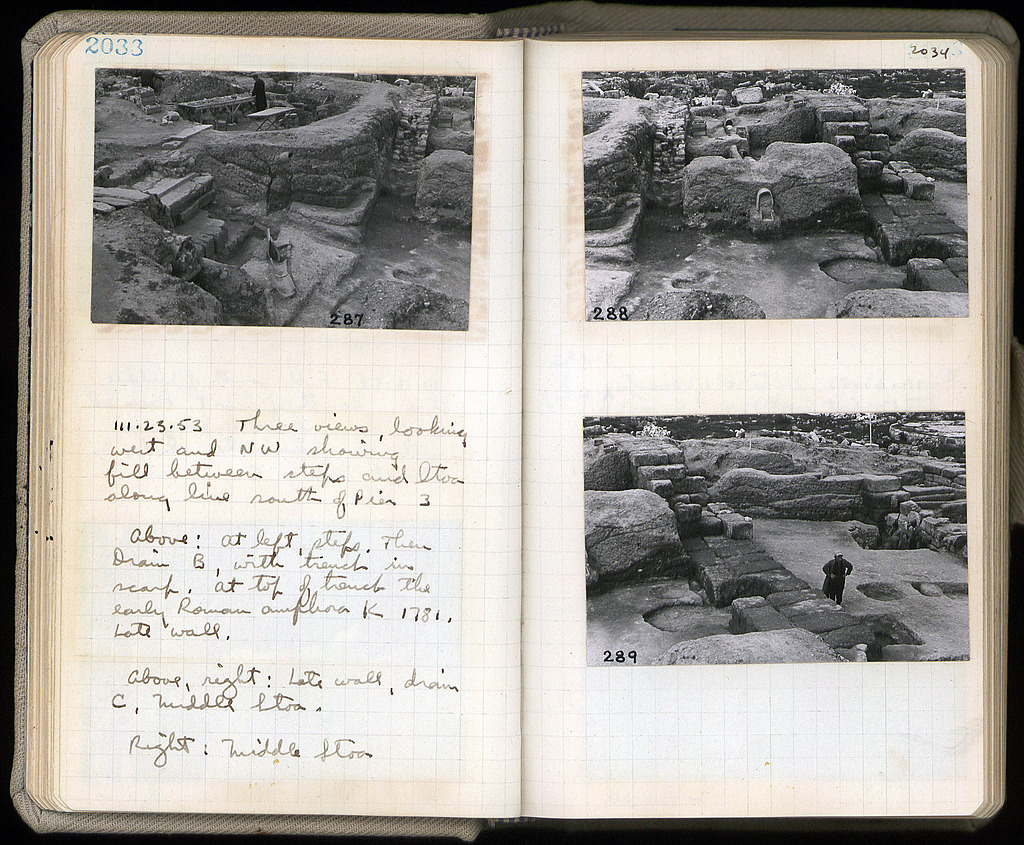 2033
287
111.23.53 Three views, looking
west and NW showing
fill between steps and Stoa
along line south of Pier 3
Above: at left, steps. Then
Drain B, with trench in
scarp. at top of trench the
early Roman amphora K 1781.
Late wall.
Above, right: Late wall, drain
C, Middle Stoa.
Right: Middle Stoa
2034
288
289